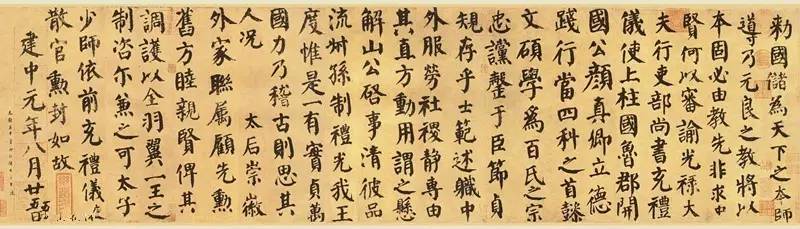 勅國儲為天下之本師
導乃元良之教將以
本固必由教先非求中
賢何以審諭光祿大
夫行吏部尚書充禮
儀使上柱國魯郡開
國公顏真卿立德
踐行當四科之首懿
文碩學為百氏之宗
忠讜罄于臣節貞
規存乎士範述職中
外服勞社稷靜專由
其直方動用謂之懸
解山公啓事清彼品
流叔孫制禮光我王
度惟是一有實貞萬
國力乃稽古則思其
人況 太后崇徽
外家聯屬顧先勳
舊方睦親賢俾其
調護以全羽翼一王之
制咨尔兼之可太子
少師依前充禮儀使
散官勳封如故
建中元年八月廿五日